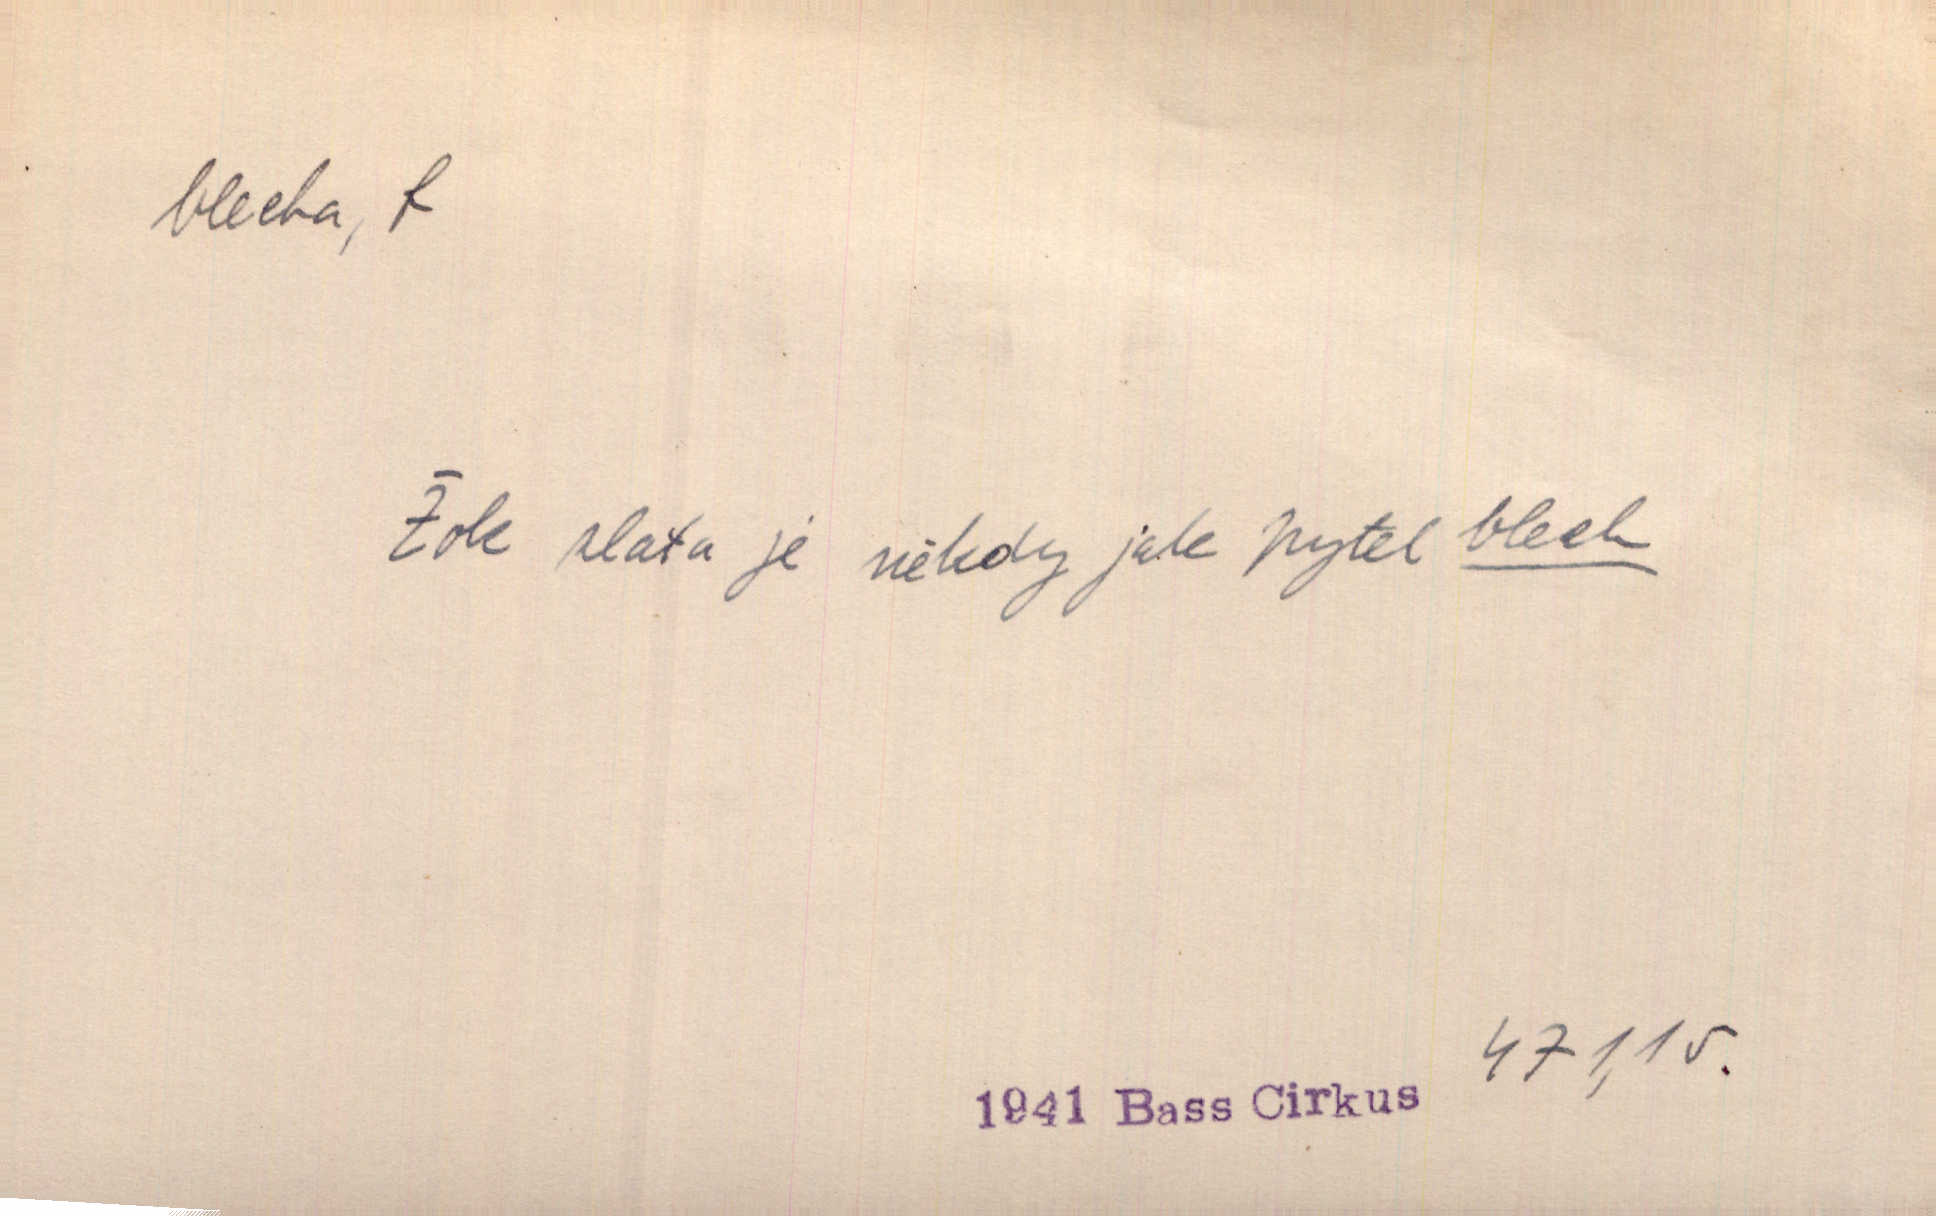 blecha, f
Žok zlata je někdy jak pytel blech
471,15.
1941 Bass Cirkus